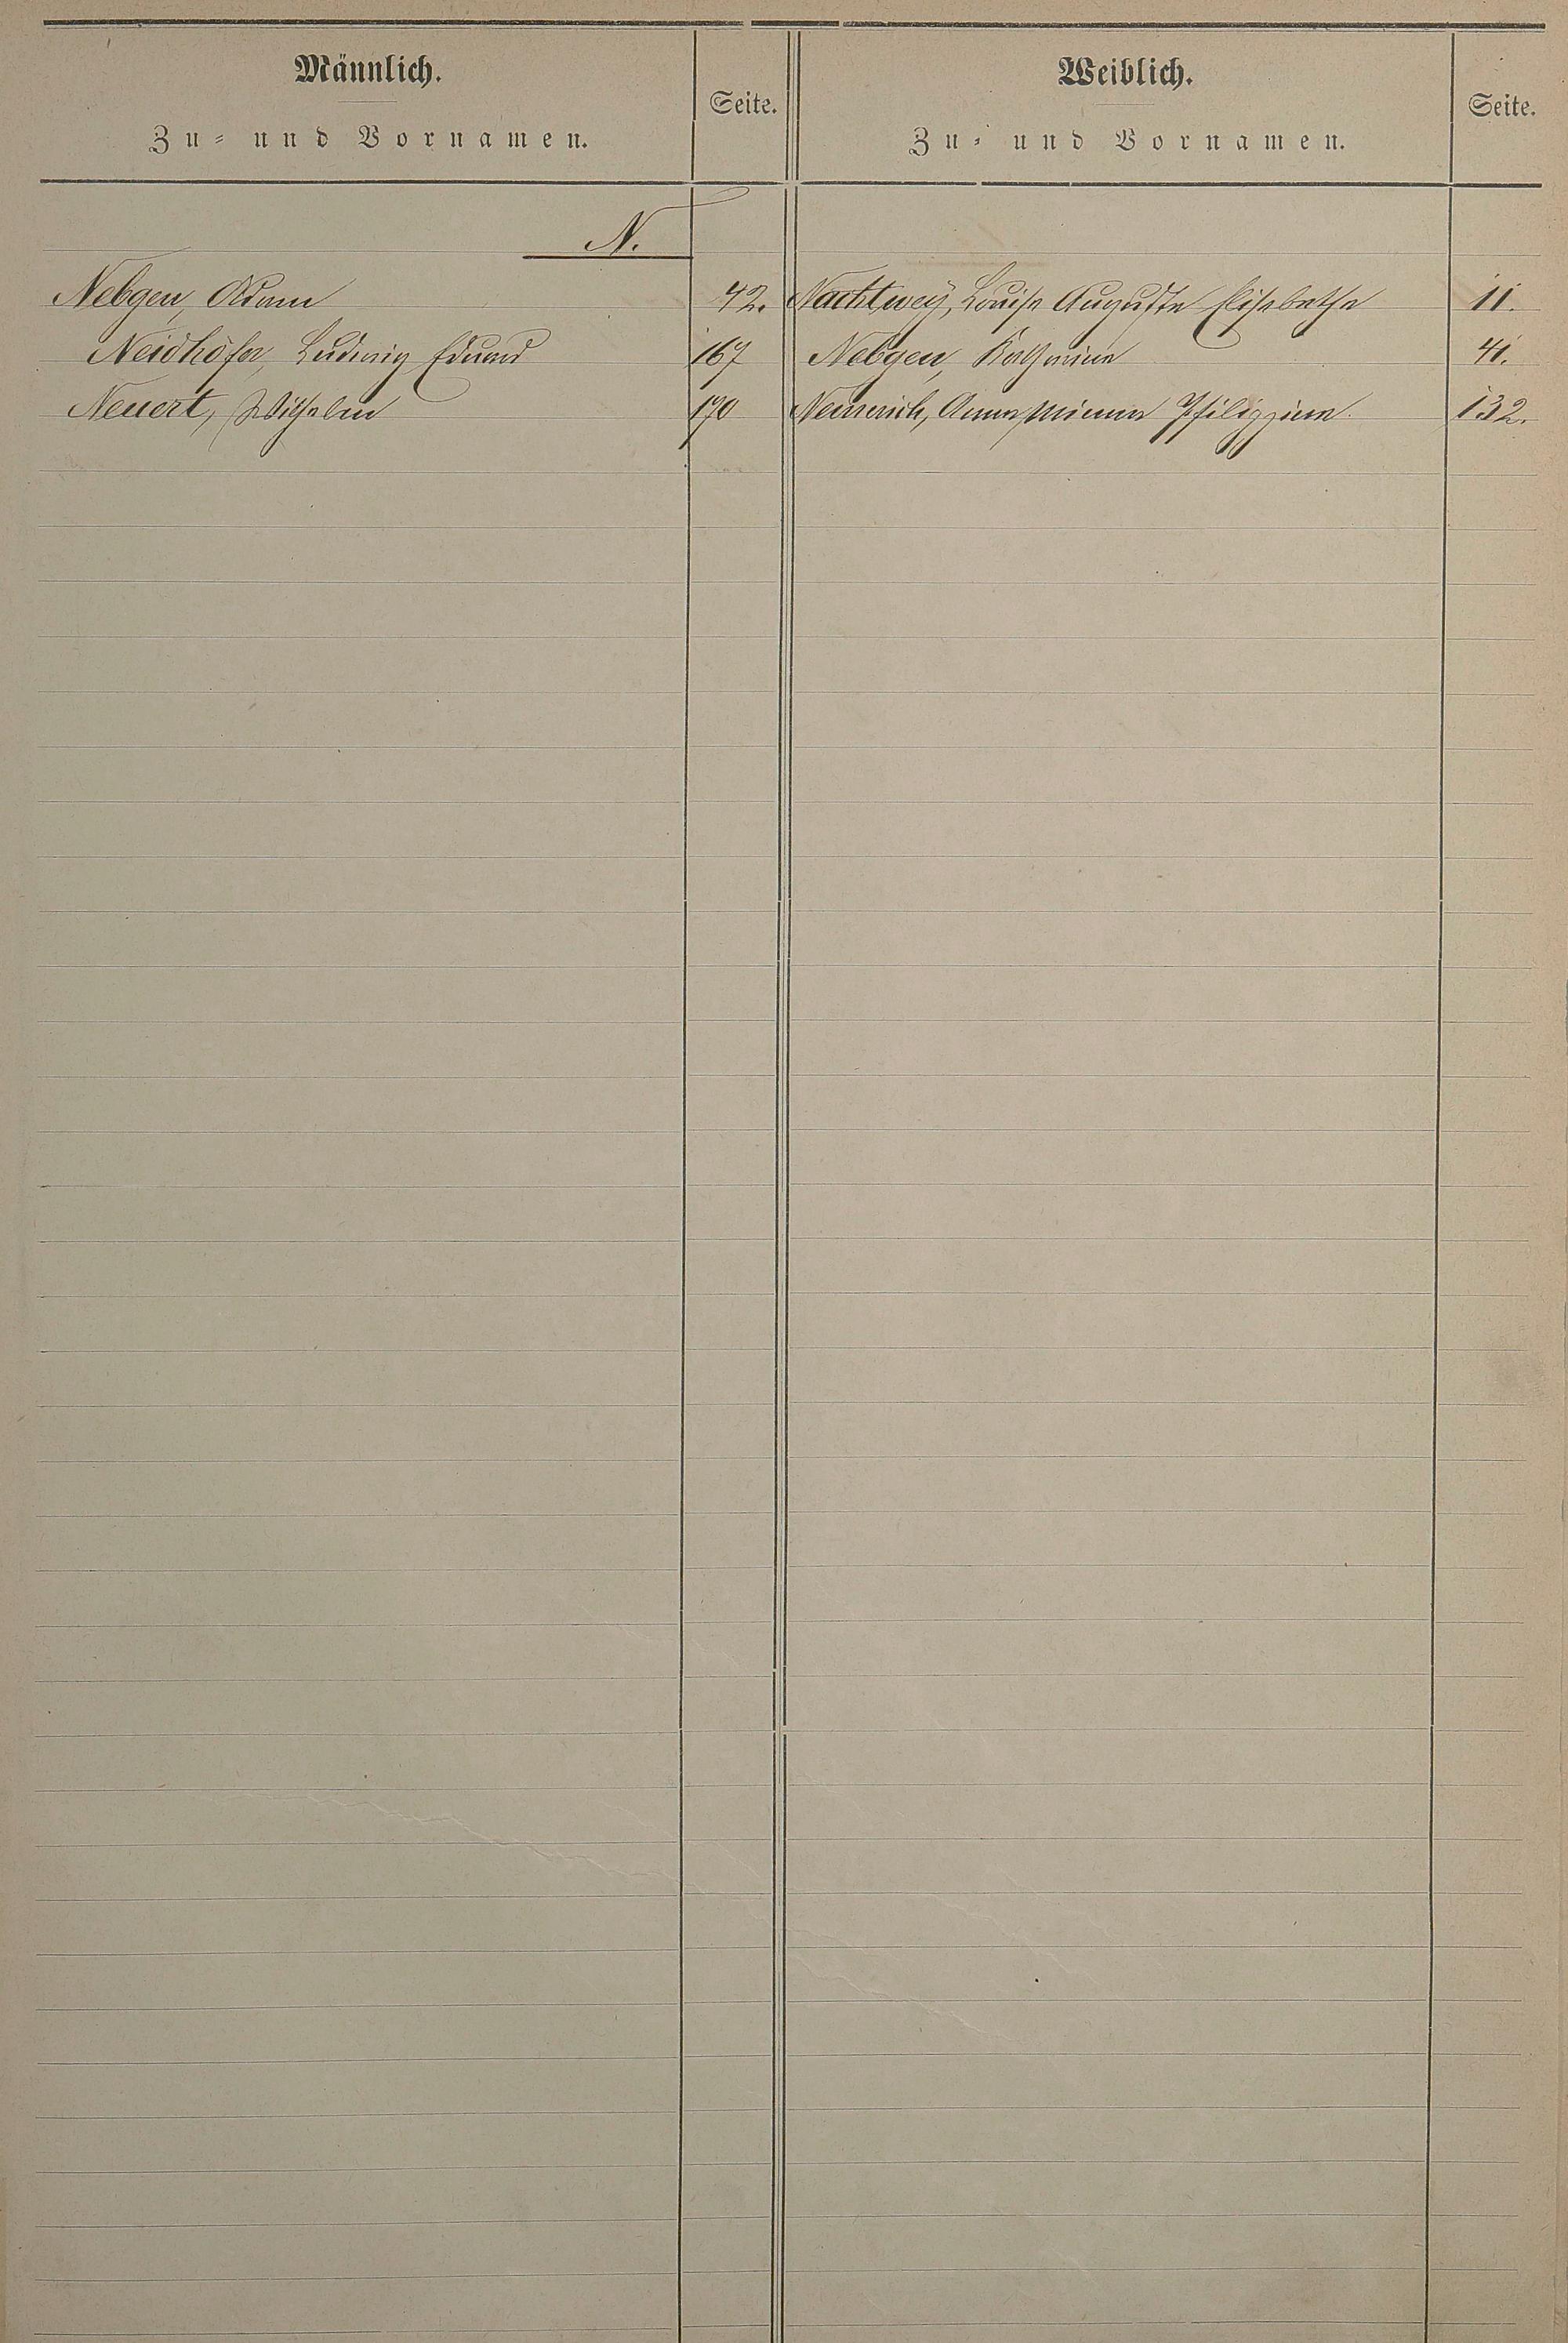 Männlich.
Zu- und Vornamen.
Seite.
Weiblich.
Zu- und Vornamen.
Seite.
N.
Nebgen, Adam 42.
Neidhöfer, Ludwig Eduard 167
Neuert, Wilhelm 170
Nachtwey, Louise Auguste Elisabethe 11.
Nebgen, Katharina 41.
Anna Minna Philippine 132.